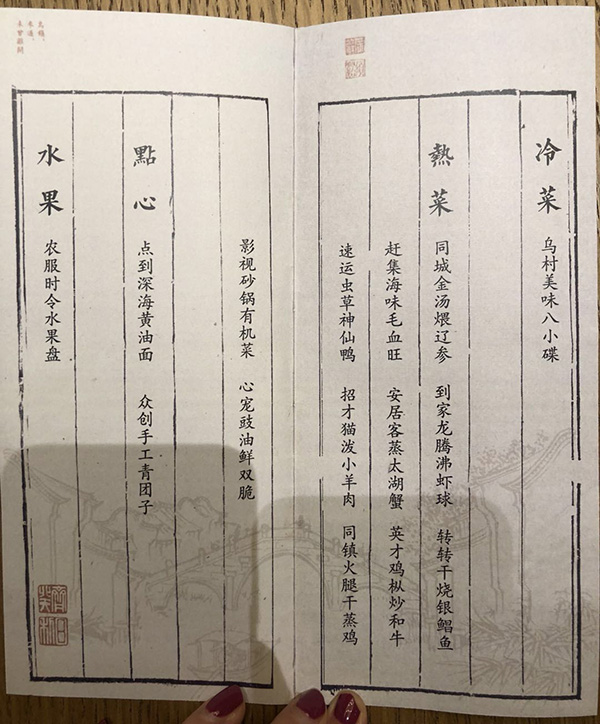 冷菜
乌村美味八小碟
熱菜
同城金汤煨辽参 到家龙腾沸虾球 转转干烧银鲳鱼
赶集海味毛血旺 安居客蒸太湖蟹 英才鸡枞炒和牛
速运虫草神仙鸭 招才猫泼小羊肉 同镇火腿干蒸鸡
影视砂锅有机菜 心宠豉油鲜双脆
點心
点到深海黄油面 众创手工青团子
水果
农服时令水果盘